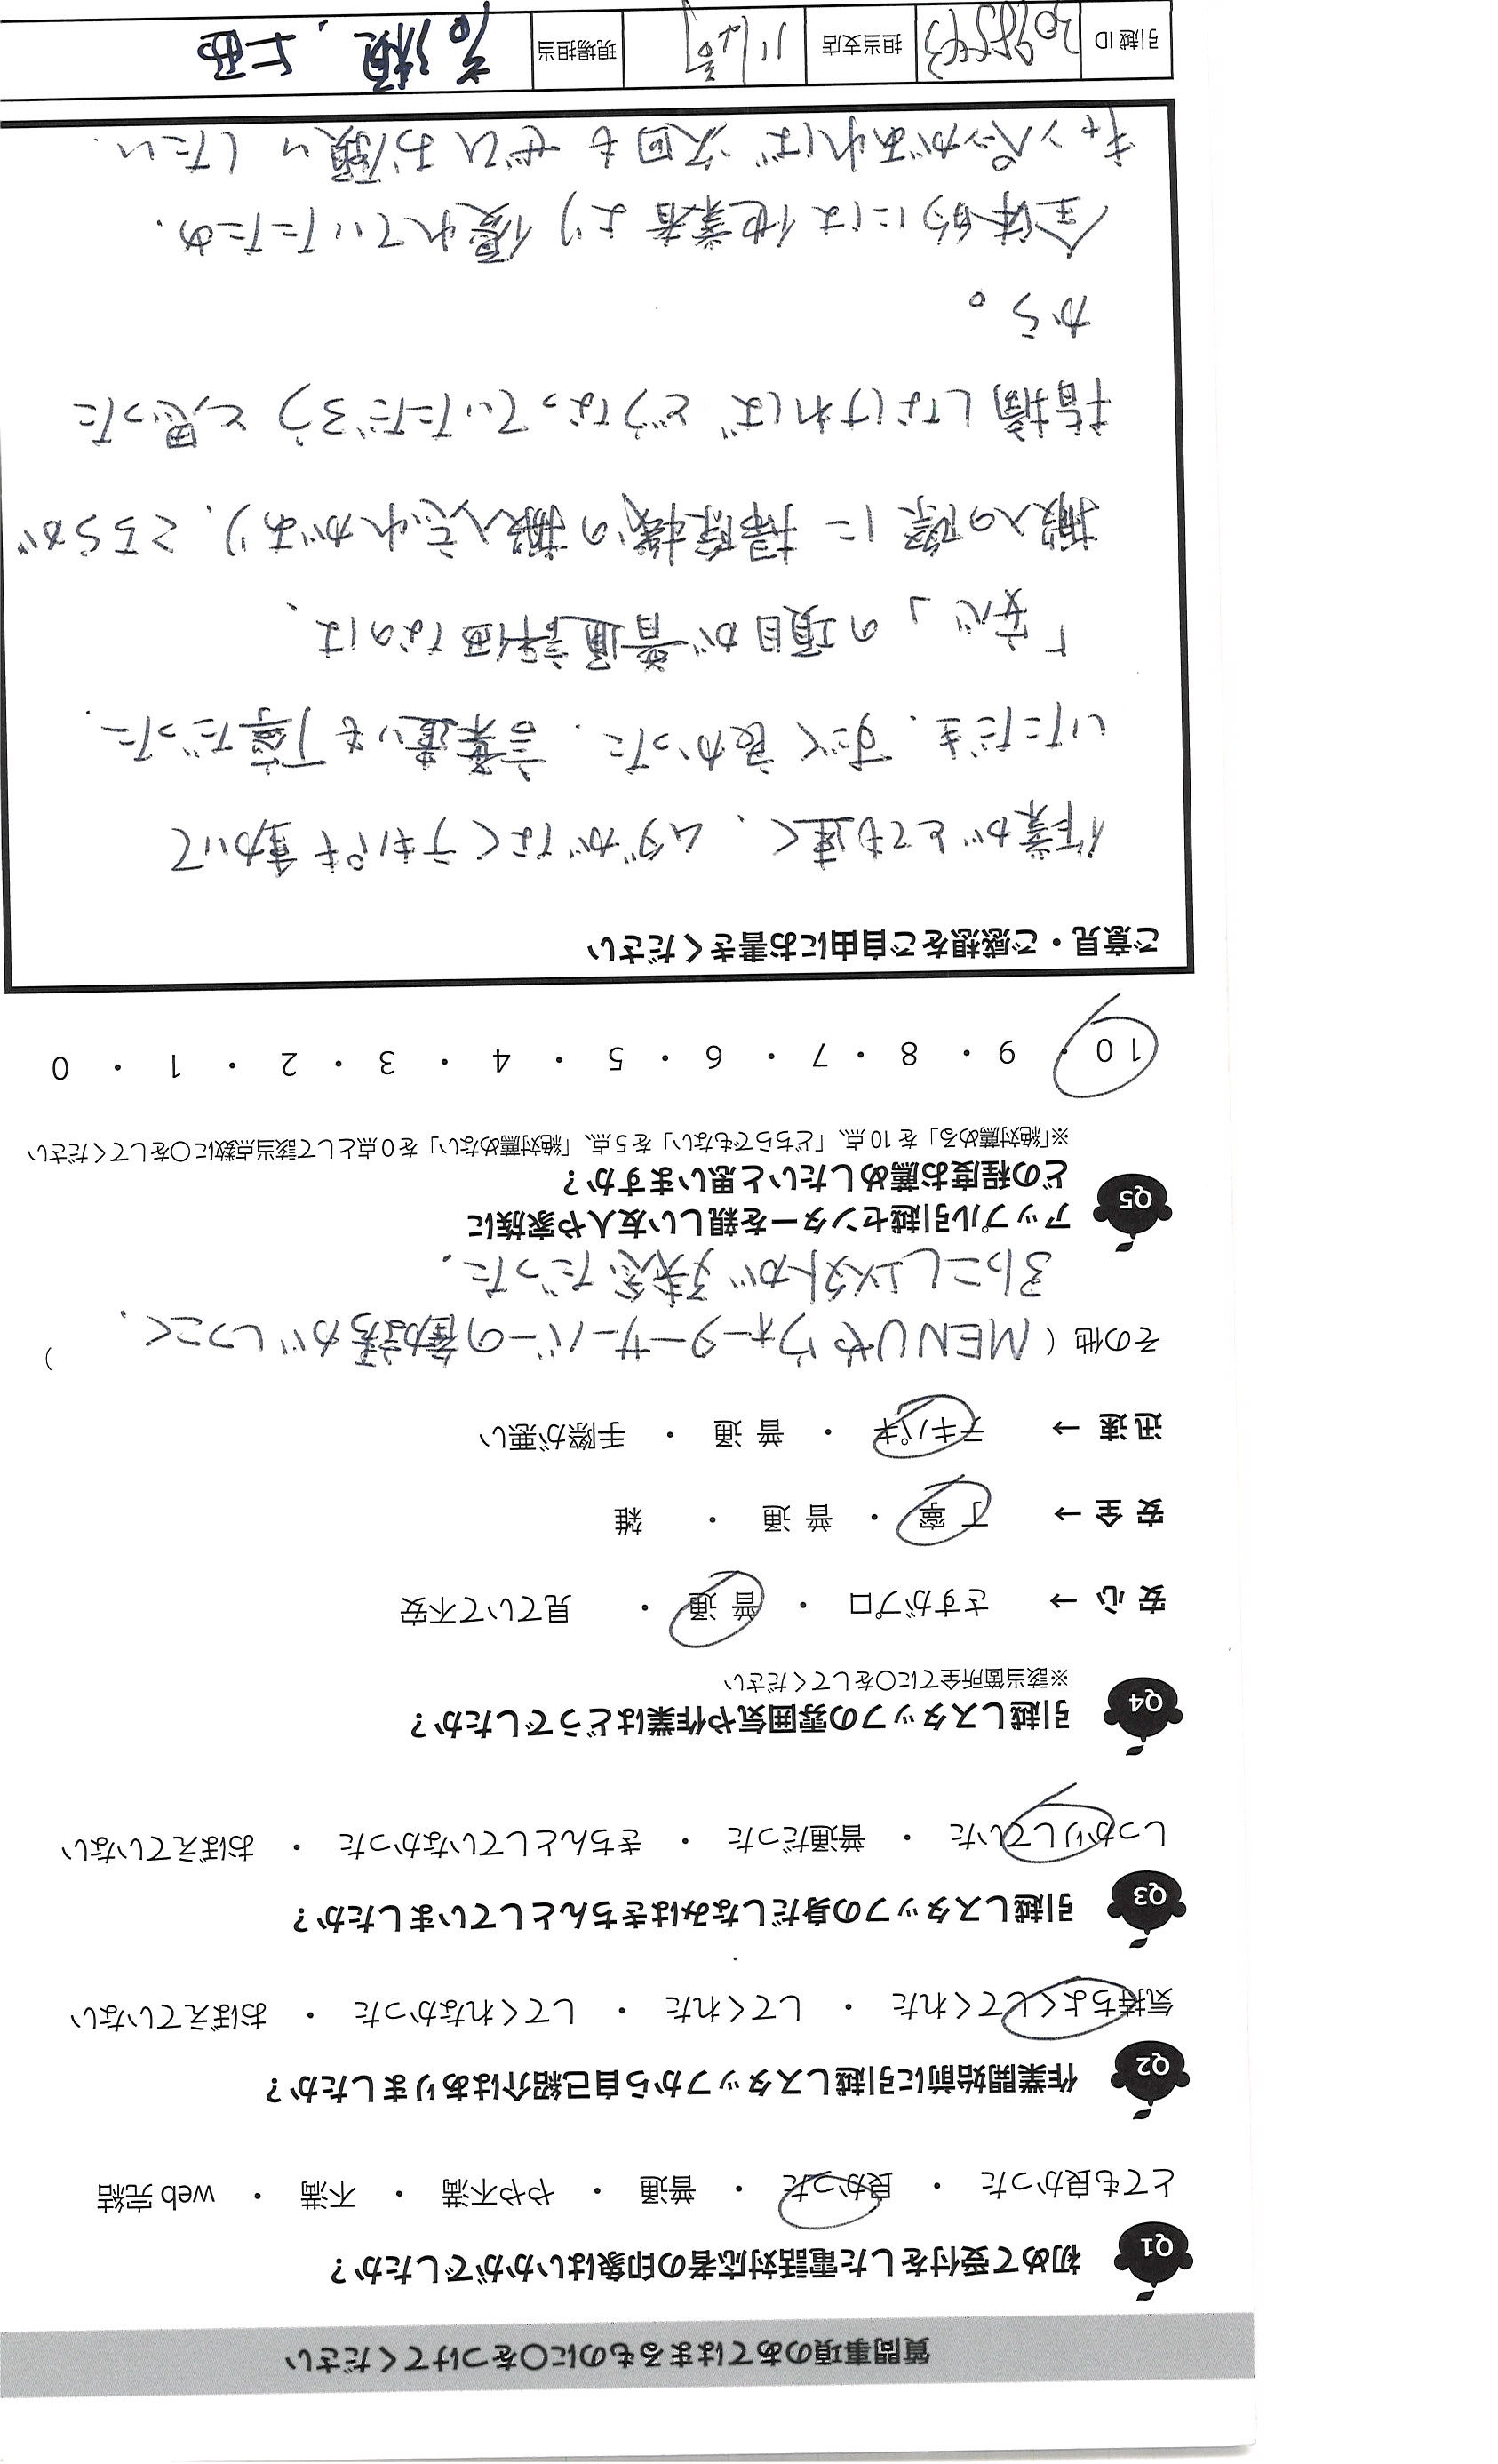 質問事項のあてはまるものに○をつけてください
Q1 初めて受付をした電話対応者の印象はいかがでしたか？
とても良かった ・ 良かった ・ 普通 ・ やや不満 ・ 不満 ・ web 完結
Q2 作業開始前に引越しスタッフから自己紹介はありましたか？
気持ちよくしてくれた ・ してくれた ・ してくれなかった ・ おぼえていない
Q3 引越しスタッフの身だしなみはきちんとしていましたか？
しっかりしていた ・ 普通だった ・ きちんとしていなかった ・ おぼえていない
Q4 引越しスタッフの雰囲気や作業はどうでしたか？
※該当箇所全てに○をしてください
安 心 → さすがプロ ・ 普 通 ・ 見ていて不安
安 全 → 丁 寧 ・ 普 通 ・ 雑
迅 速 → テキパキ ・ 普 通 ・ 手際が悪い
その他（ MENUやウォーターサーバーの電話がしつこく、 ）
引こし以外が残念だった.
Q5 アップル引越センターを親しい友人や家族に
どの程度お薦めしたいと思いますか？
※「絶対薦める」を10点、「どちらでもない」を5点、「絶対薦めない」を0点として該当点数に○をしてください
10 ・ 9 ・ 8 ・ 7 ・ 6 ・ 5 ・ 4 ・ 3 ・ 2 ・ 1 ・ 0
ご意見・ご感想をご自由にお書きください
作業がとても速く、ムダがなくテキパキ動いて
いただき、すごく良かった. 言葉遣いも丁寧だった.
「安心」の項目が普通評価なのは、
搬入の際に掃除機の搬入忘れがあり、こちらが
指摘しなければどうなっていただろうと思った
から。
全体的には他業者より優れていたため.
キャンペーンがあれば次回もぜひお願いしたい.
引越ID 担当支店 現場担当